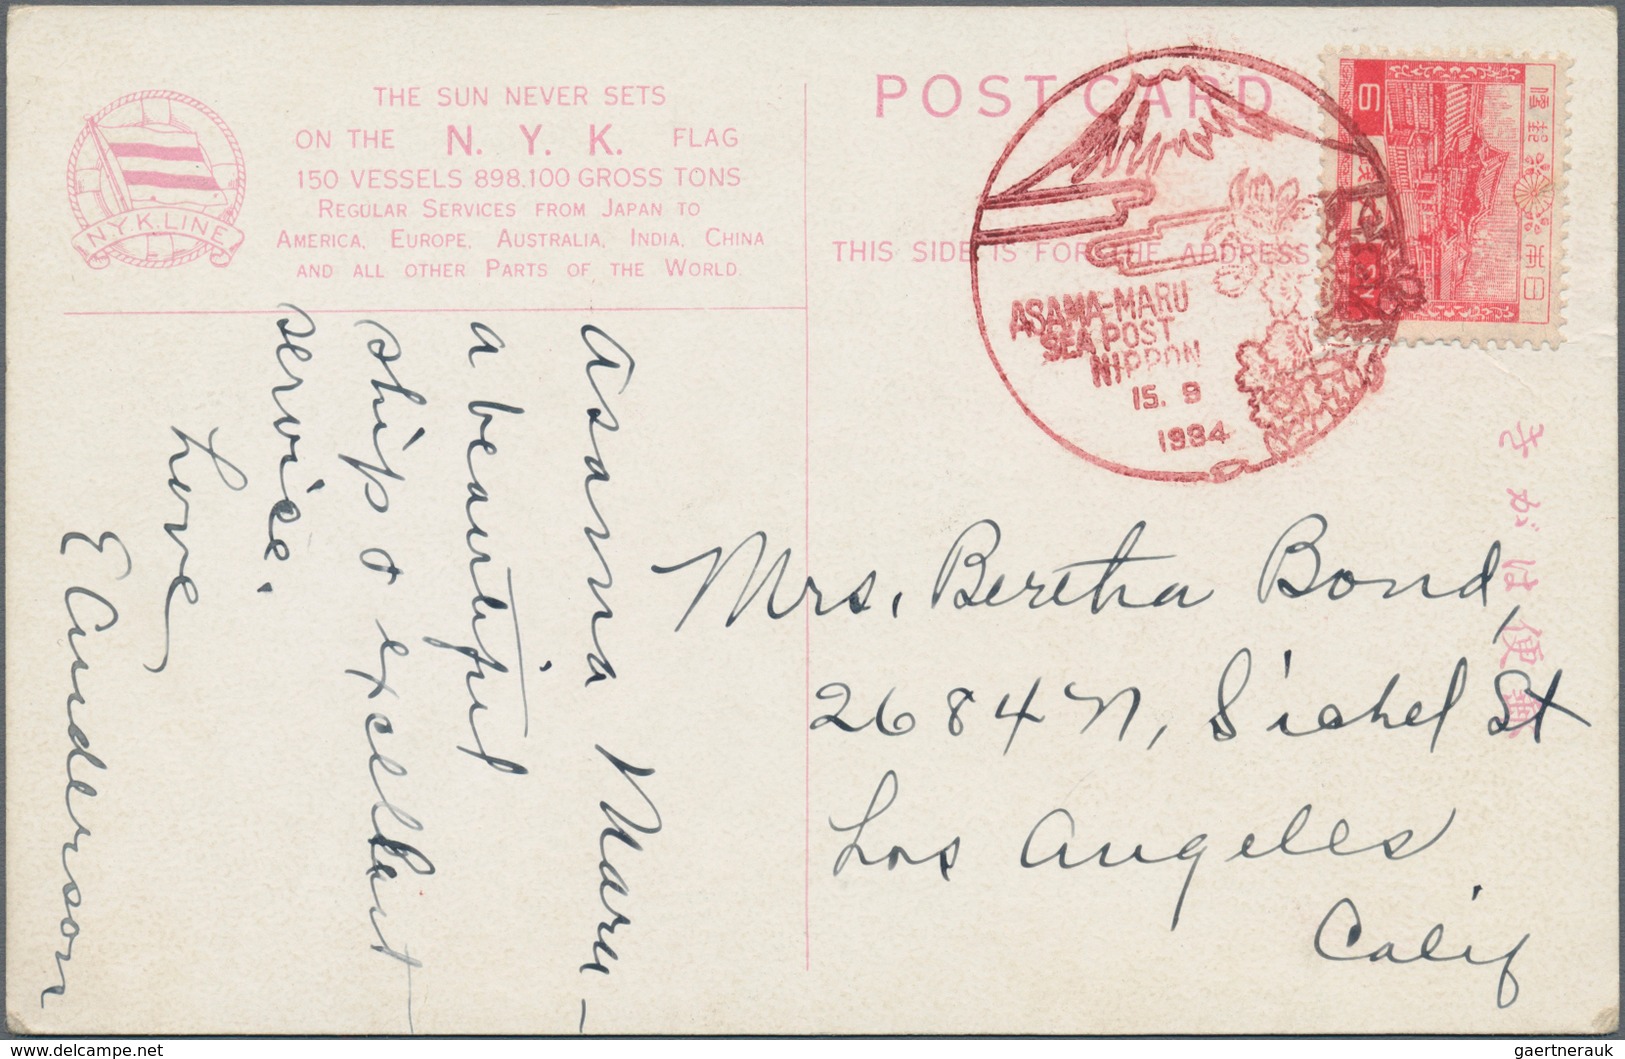 THE SUN NEVER SETS
ON THE N. Y. K. FLAG
150 VESSELS 898.100 GROSS TONS
REGULAR SERVICES FROM JAPAN TO
AMERICA, EUROPE, AUSTRALIA, INDIA, CHINA
AND ALL OTHER PARTS OF THE WORLD.
N.Y.K.LINE
POST CARD
THIS SIDE IS FOR THE ADDRESS
ASAMA-MARU
SEA POST
NIPPON
15. 9
1934
6
大日本郵便
きがは便郵
Asama Maru –
a beautiful
ship & excellent
service.
Love
E Anderson
Mrs. Bertha Bond,
2684 N, Sichel St
Los Angeles
Calif
delcampe.net
gaertnerauk